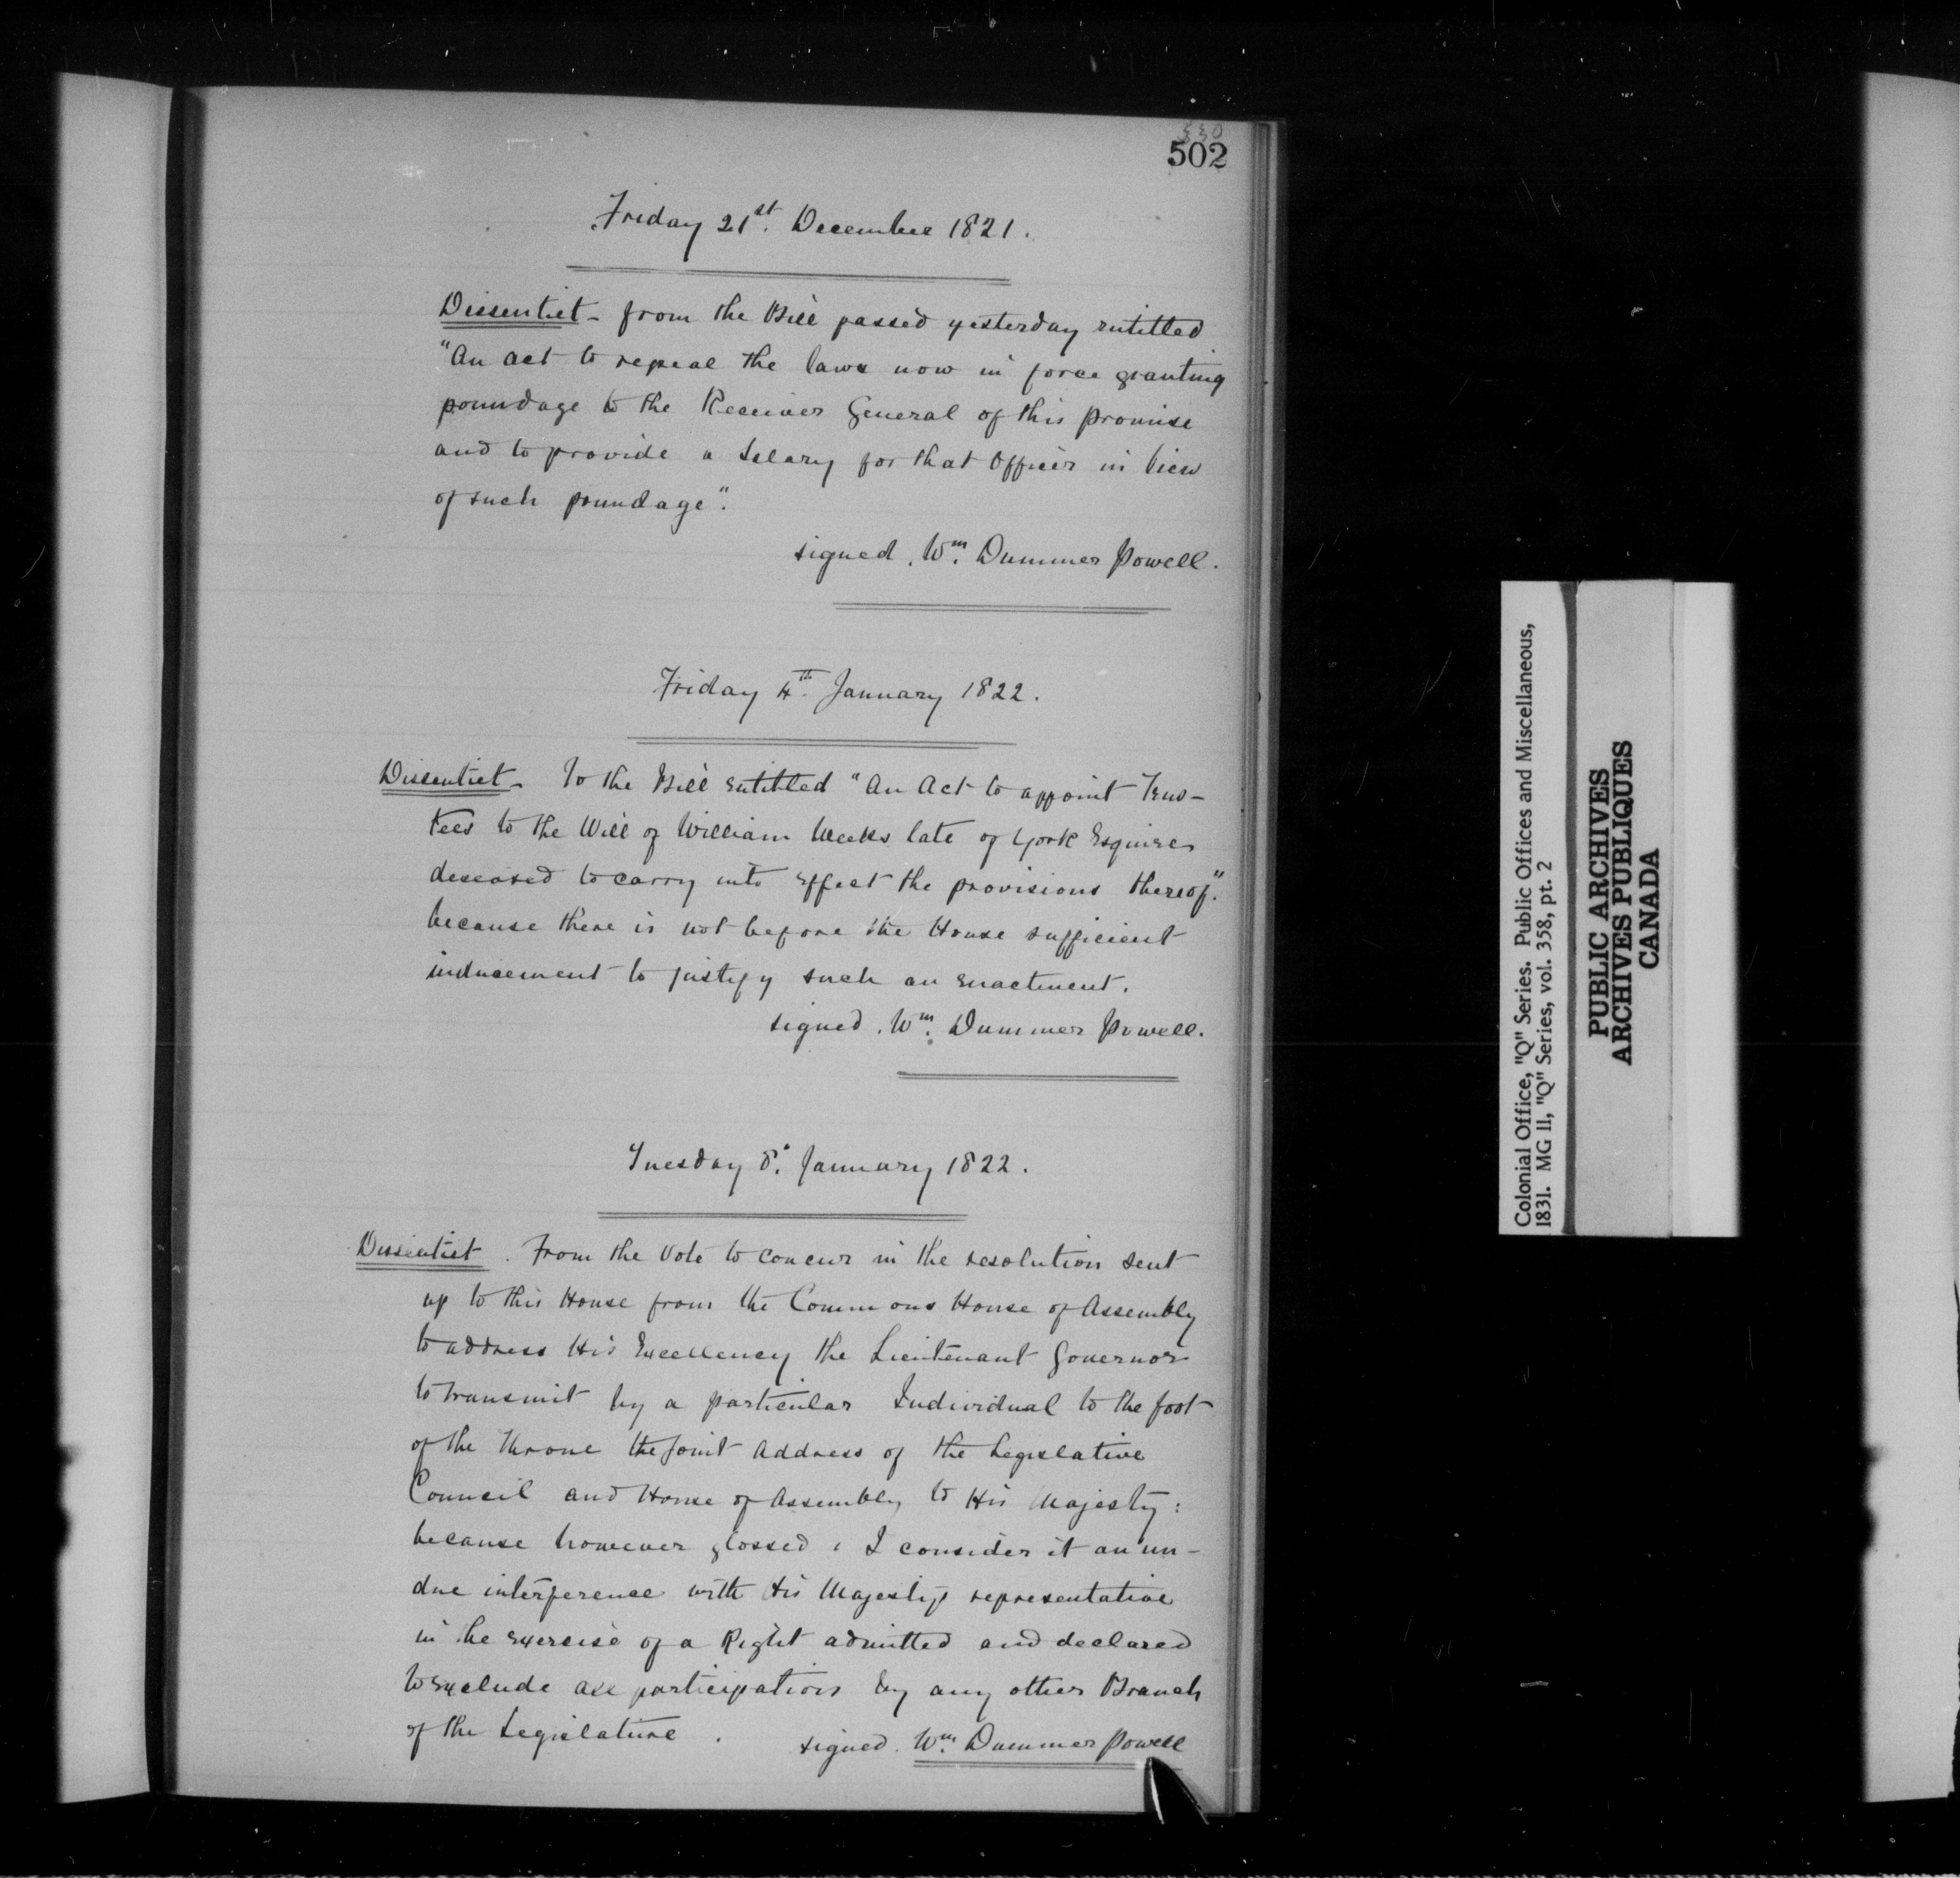 330
502
Friday 21st. December 1821.
Dissentiet - from the Bill passed yesterday entitled
"An act to repeal the laws now in force granting
poundage to the Receiver General of this Province
and to provide a Salary for that Officer in lieu
of such poundage".
signed. Wm. Dummer Powell.
Friday 4th. January 1822.
Dissentiet - To the Bill entitled "An Act to appoint Trus-
tees to the Will of William Weeks late of York Esquire
deceased to carry into effect the provisions thereof".
because there is not before the House sufficient
inducement to justify such an enactment.
signed. Wm. Dummer Powell.
Tuesday 8. January 1822.
Dissentiet. From the Vote to concur in the resolution sent
up to this House from the Commons House of Assembly
to address His Excellency the Lieutenant Governor
to transmit by a particular Individual to the foot
of the Throne the Joint Address of the Legislative
Council and House of Assembly to His Majesty:
because however glossed, I consider it an un-
due interference with His Majesty's representative
in the exercise of a Right admitted and declared
to exclude all participation by any other Branch
of the Legislature.
signed. Wm. Dummer Powell
Colonial Office, "Q" Series. Public Offices and Miscellaneous,
1831. MG 11, "Q" Series, vol. 358, pt. 2
PUBLIC ARCHIVES
ARCHIVES PUBLIQUES
CANADA